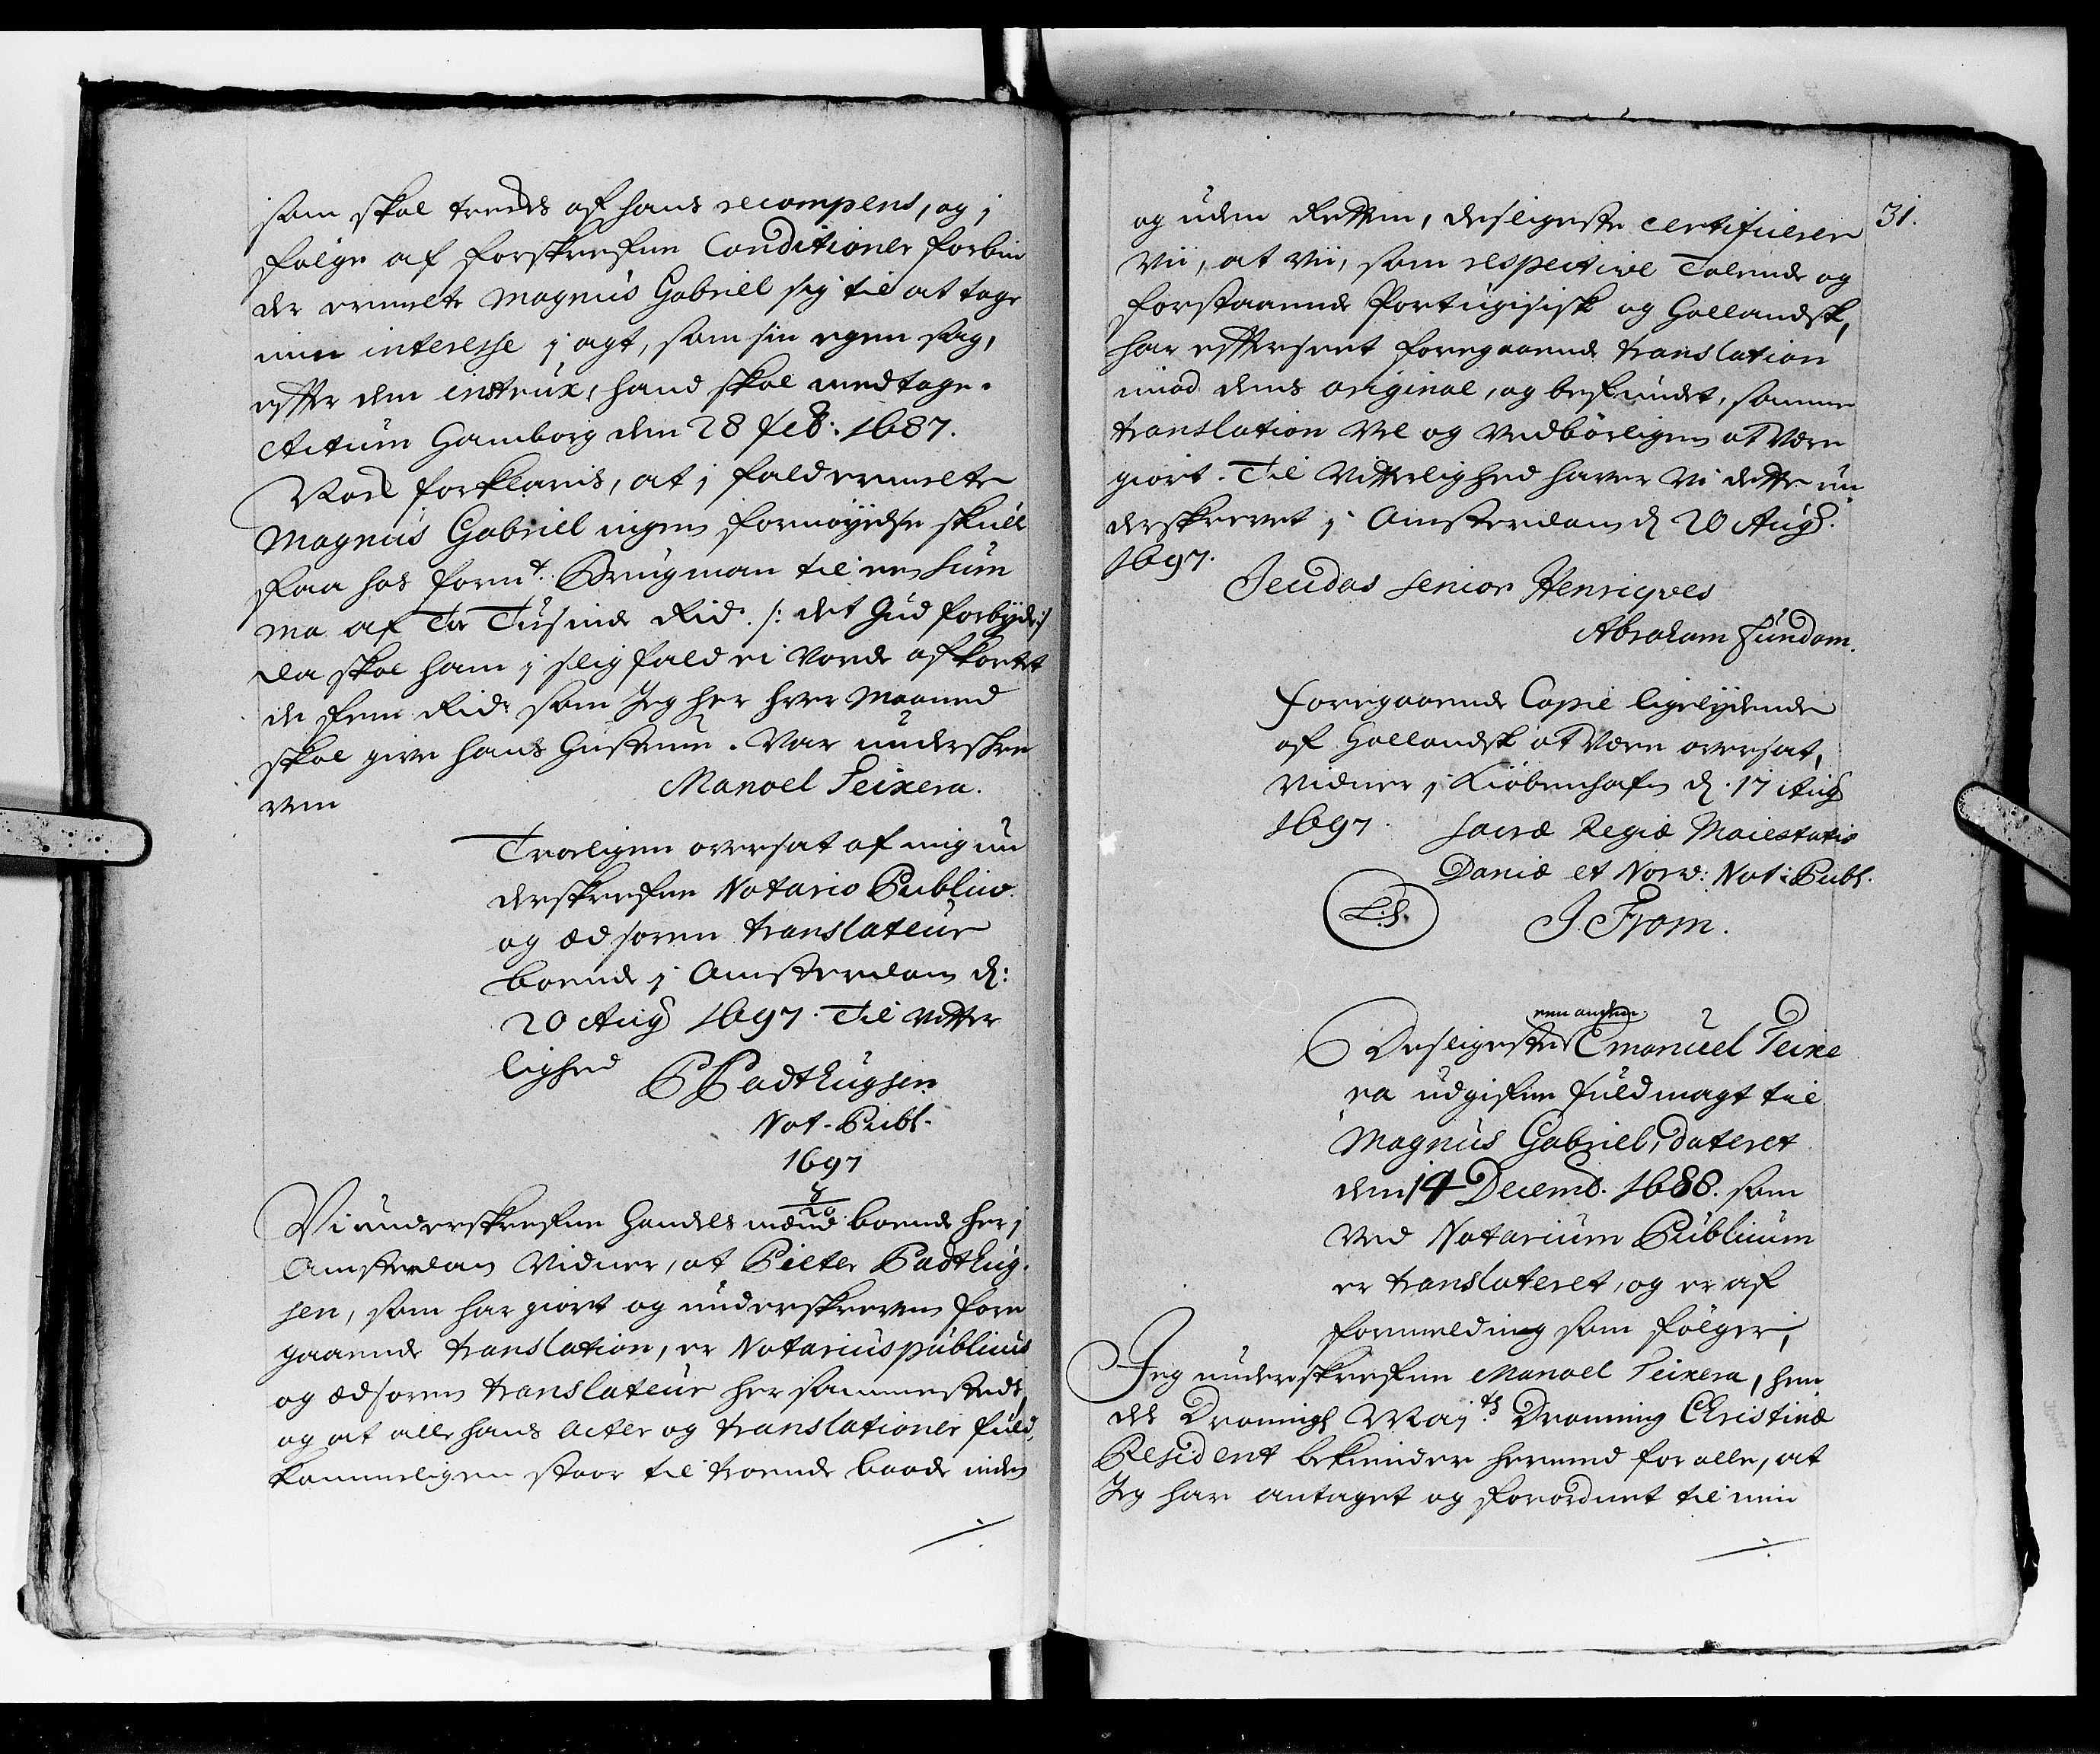 som skal trecks af hans recompens, og j
følge af forskrefne Conditioner forbin
der ermelte Magnus Gabriel sig til at tage
min interesse j agt, som sin egen sag,
effter den instrux, hand skal medtage.
Actum Hamborg den 28 feb: 1687.
Vorder forklaris, at j fald ermelte
Magnus Gabriel ingen fornøyelse skulle
faa hos fornt. Brugman til en Sum
ma af Tie Tusinde Rid. /: det Gud forbyde :/
da skal ham j slig fald ei vorde afkortet
de fem Rid: som Jeg her hver Maaned
skal give hans Hustrue. Var underskre
ven
Manoel Teixera.
Troeligen oversat af mig un
derskrefne Notario Publico
og Ædsoren translateur
boende j Amsterdam d:
20 Aug 1697. Til vitter
lighed
P Padthugsen
Not. Publ.
1697
8
20
Vi underskrefne Handels mænd boende her j
Amsterdam vidner, at Pieter Padthug-
sen, som har giort og underskreven fore
gaaende translation, er Notarius publicus
og Ædsoren translateur her sammesteds,
og at alle hans acter og translationer fuld,
kommeligen staar til troende baade inden
./.
og uden Retten, desligeste certificerer
31.
vii, at vii, som respective Talende og
forstaaende Portugisisk og Hollandsk,
har effterseet foregaaende translation
imod dend original, og befundet, samme
translation vel og vedbørligen at være
giort. Til vitterlighed haver vi dette un
derskrevet j Amsterdam d 20 Aug.
1697.
Jeudas senior Henriqves
Abraham Fundam.
Foregaaende Copie ligelydende
af Hollandsk at være oversat,
vidner j Kiøbenhafn d. 17 Aug
1697. Sacræ Regiæ Maiestatis
Daniæ et Norv: Not: Publ.
L:S.
J. From.
een anden
Desligeste Emanuel Teixe
ra udgifne fuldmagt til
Magnus Gabriel, dateret
den 14 Decemb. 1688. som
ved Notarium Publicum
er translateret, og er af
formelding som følger,
Jeg underskrefne Manoel Teixera, hen
des Dronnigl May.ts Dronning Christinæ
Resident bekiender hermed for alle, at
Jeg har antaget og forordnet til min
./.